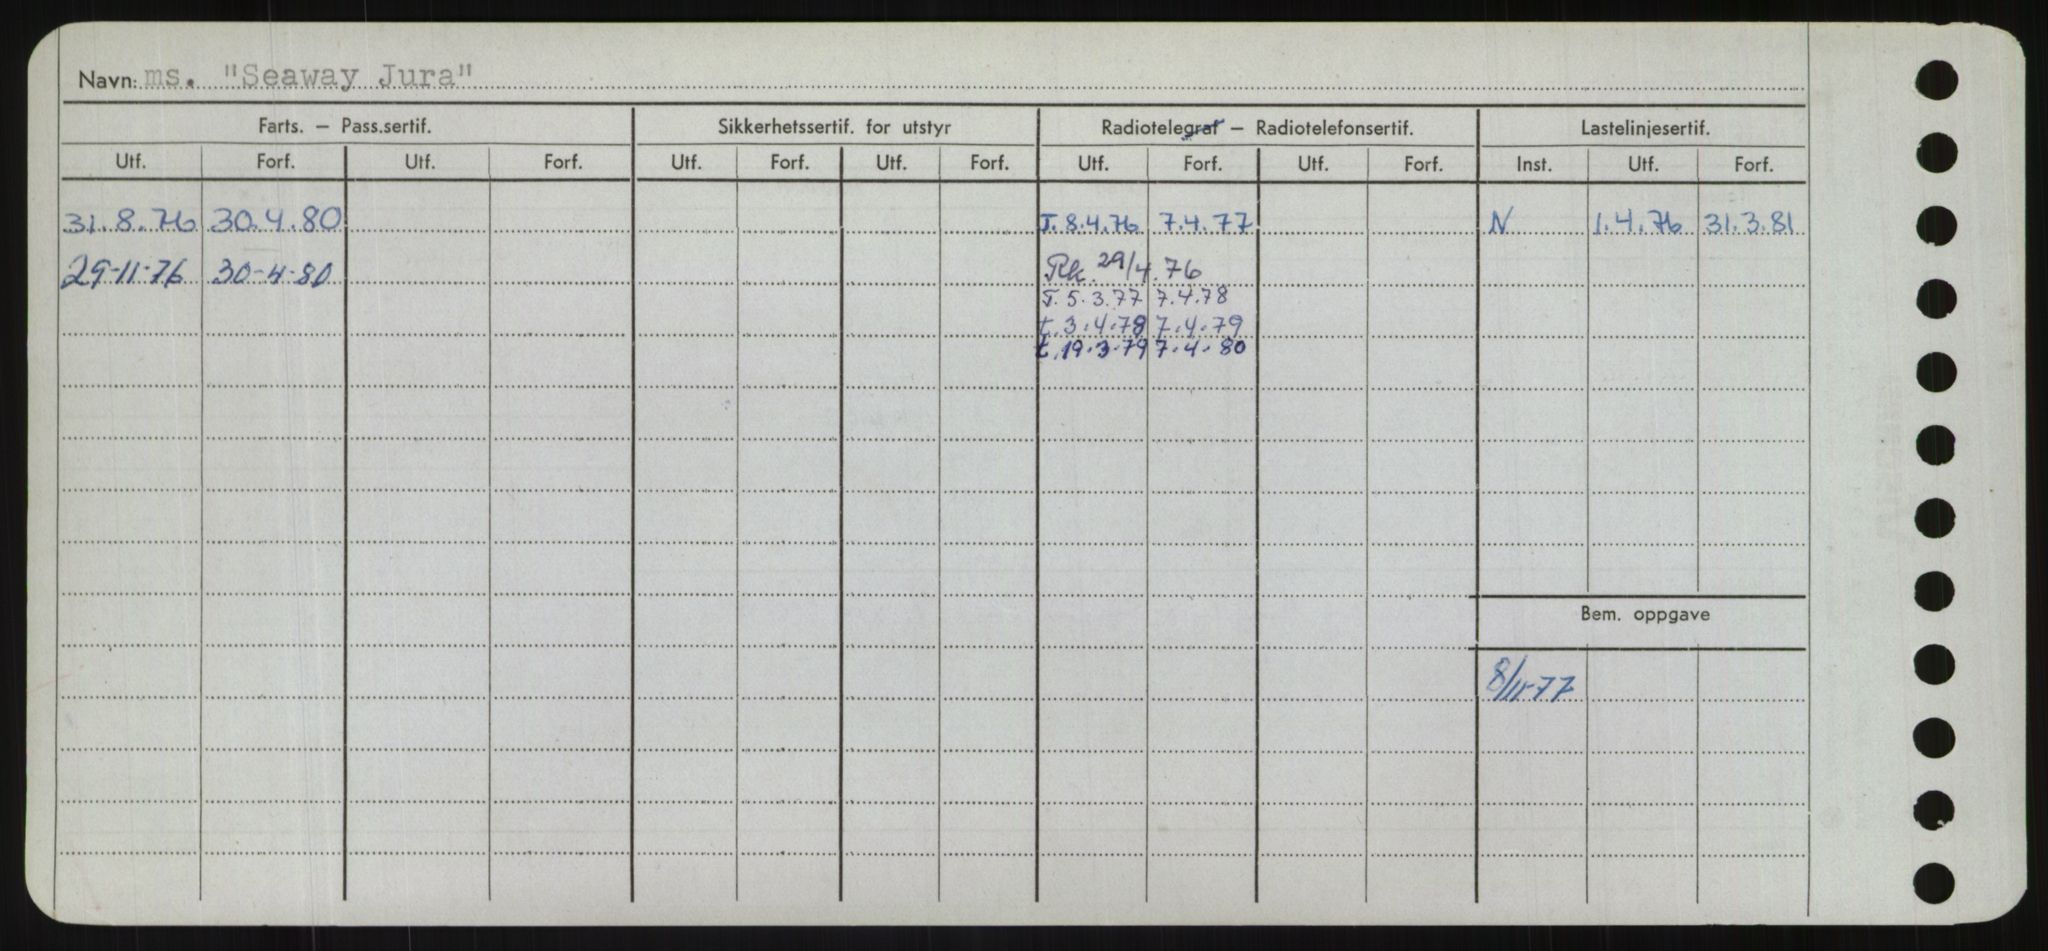 Navn: ms. "Seaway Jura"
Farts. — Pass.sertif. Sikkerhetssertif. for utstyr Radiotelegraf — Radiotelefonsertif. Lastelinjesertif.
Utf. Forf. Utf. Forf. Utf. Forf. Utf. Forf. Utf. Forf. Utf. Forf. Inst. Utf. Forf.
31.8.76 30.4.80 T. 8.4.76 7.4.77 N 1.4.76 31.3.81
29-11-76 30-4-80 Rk. 29/4.76
T. 5.3.77 7.4.78
t. 3.4.78 7.4.79
t. 19.3.79 7.4.80
Bem. oppgave
8/11-77